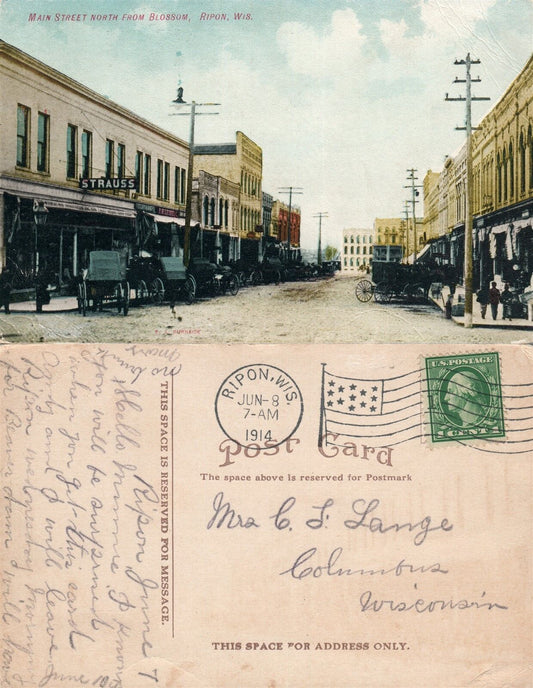 MAIN STREET NORTH FROM BLOSSOM, RIPON, WIS.
STRAUSS
THIS SPACE IS RESERVED FOR MESSAGE.
Ripon June 7
Hallo Minnie. I know
you will be suprised
when you get this card
and I will leave
Ripon wednesday June 10
for Beaver Dam I will
RIPON, WIS.
JUN-8
7-AM
1914
U.S. POSTAGE
Post Card
The space above is reserved for Postmark
Mrs C. F. Lange
Columbus
Wisconsin
THIS SPACE FOR ADDRESS ONLY.